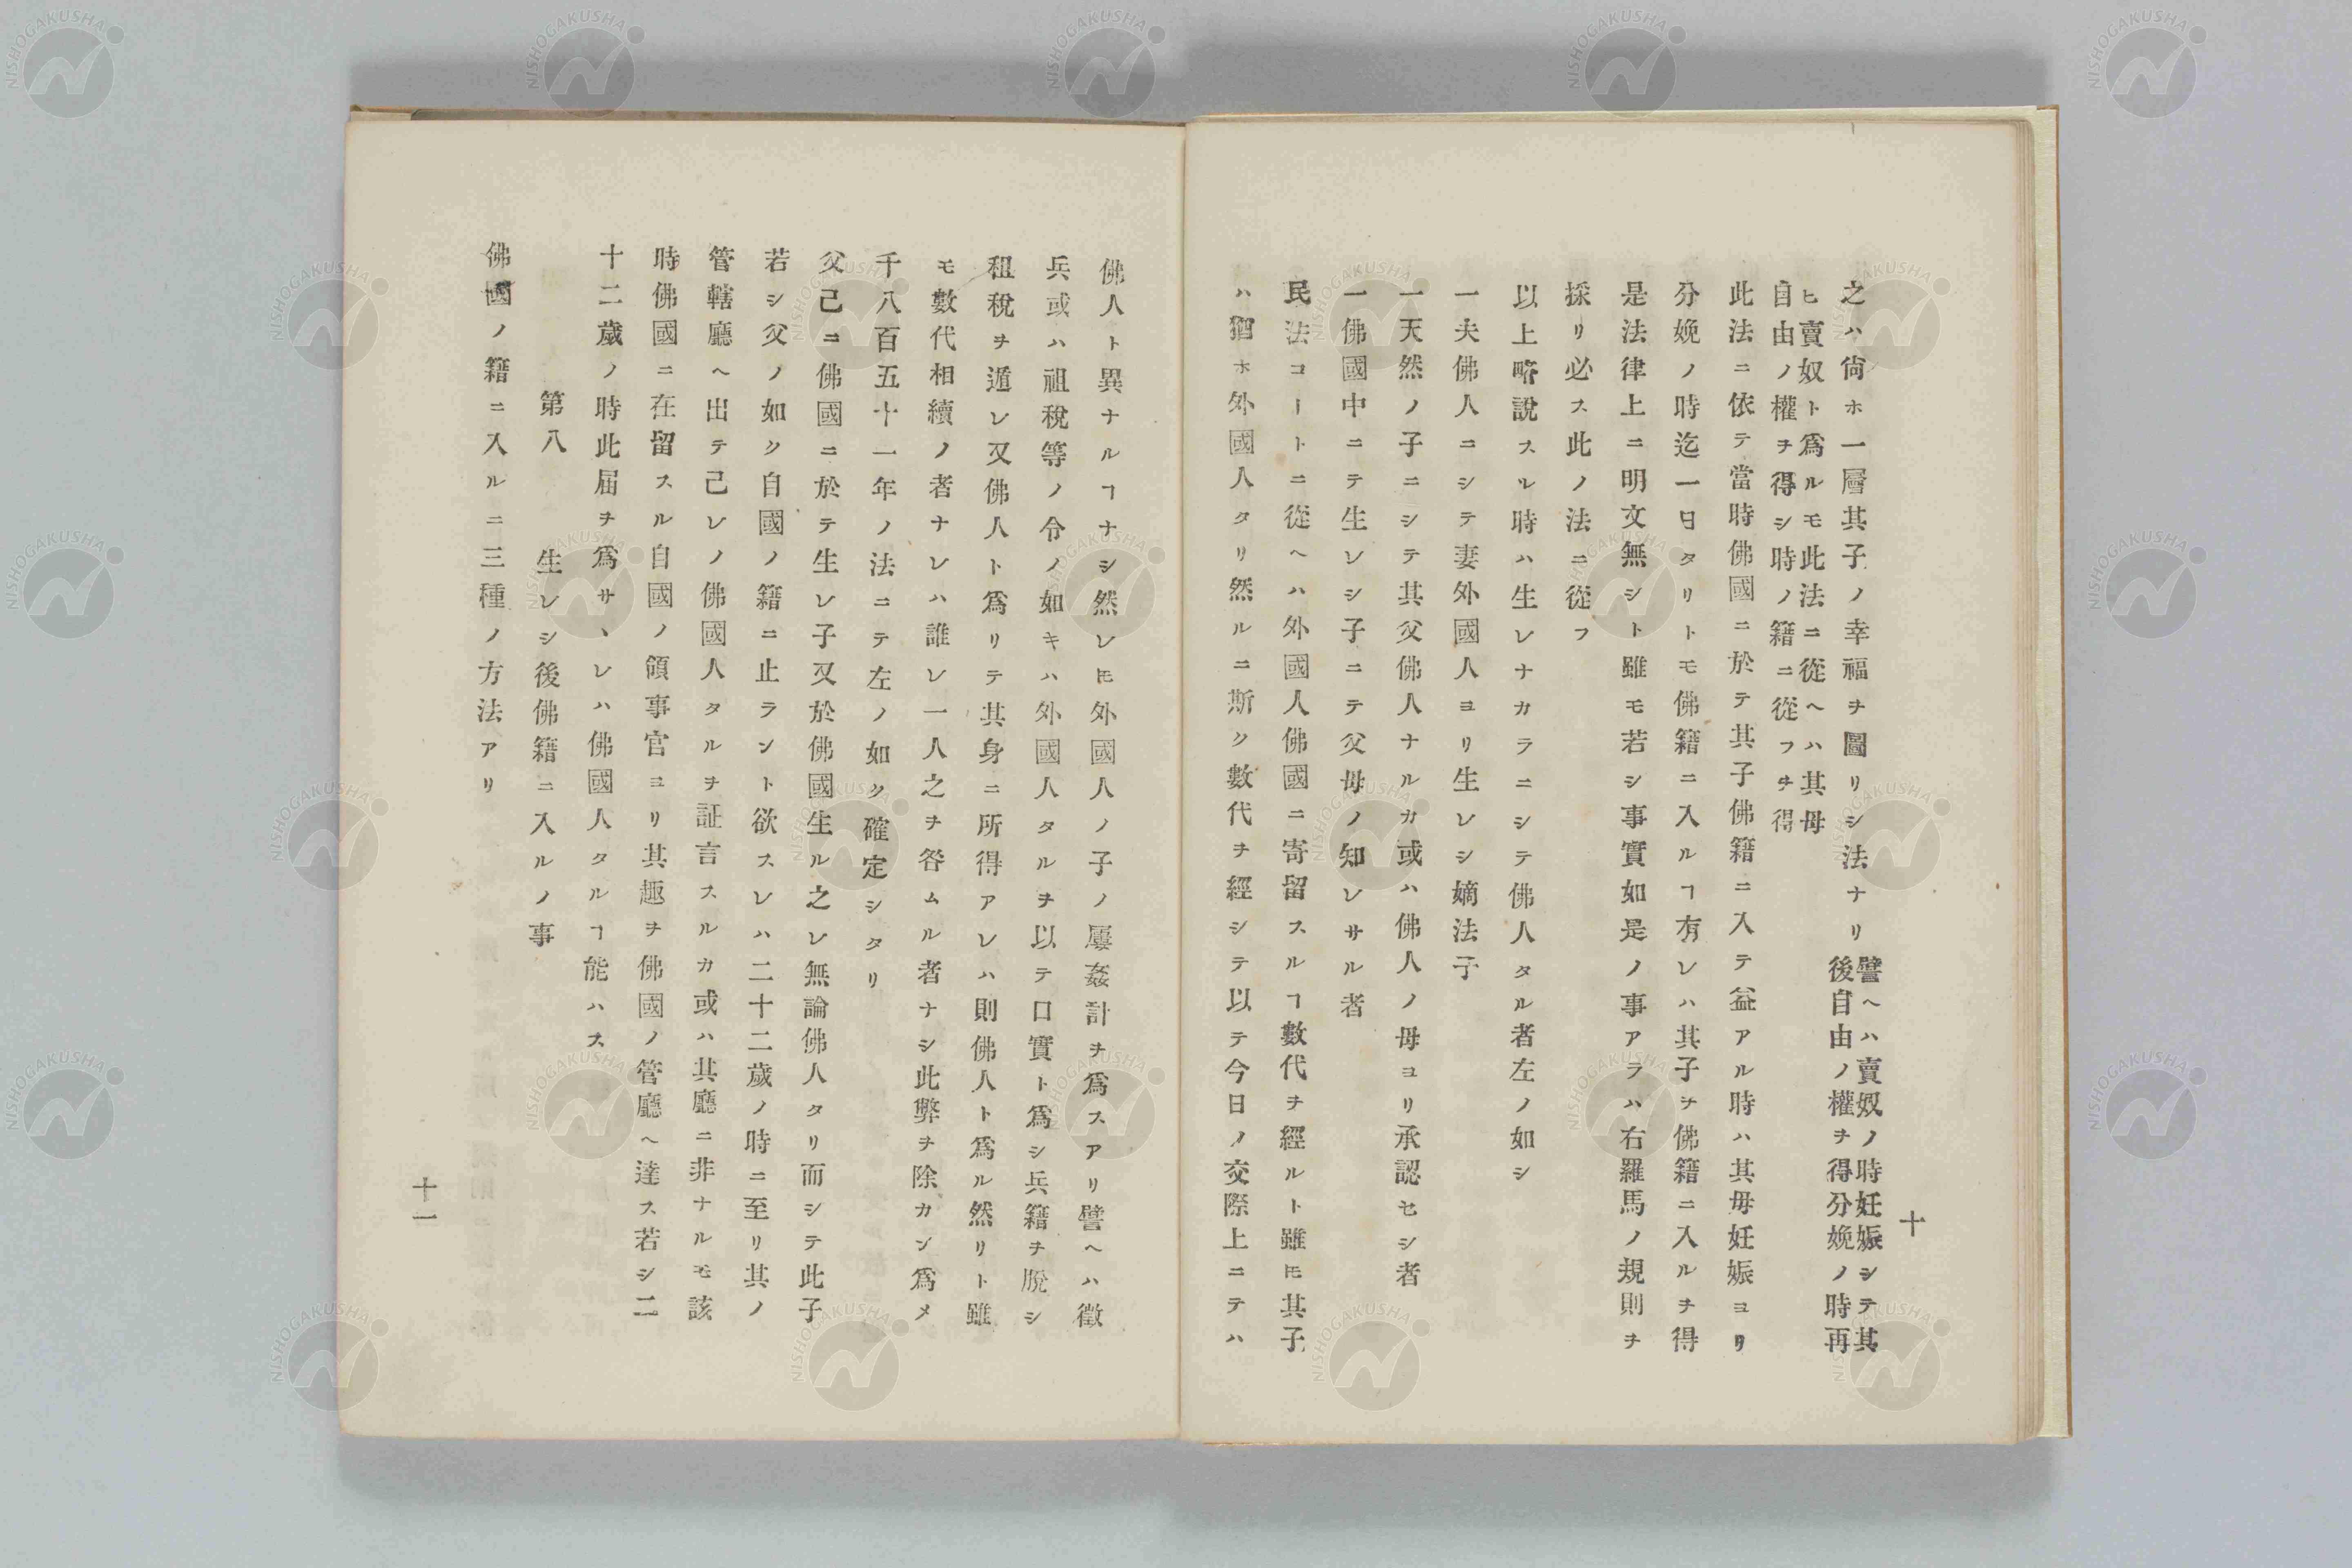 十
之ハ尙ホ一層其子ノ幸福ヲ圖リシ法ナリ
譬ヘハ賣奴ノ時妊娠シテ其
後自由ノ權ヲ得分娩ノ時再
ヒ賣奴ト爲ルモ此法ニ從ヘハ其母
自由ノ權ヲ得シ時ノ籍ニ從フヲ得
此法ニ依テ當時佛國ニ於テ其子佛籍ニ入テ益アル時ハ其母妊娠ヨリ
分娩ノ時迄一日タリトモ佛籍ニ入ルヿ有レハ其子ヲ佛籍ニ入ルヲ得
是法律上ニ明文無シト雖モ若シ事實如是ノ事アラハ右羅馬ノ規則ヲ
採リ必ス此ノ法ニ從フ
以上略說スル時ハ生レナカラニシテ佛人タル者左ノ如シ
一夫佛人ニシテ妻外國人ヨリ生レシ嫡法子
一天然ノ子ニシテ其父佛人ナルカ或ハ佛人ノ母ヨリ承認セシ者
一佛國中ニテ生レシ子ニテ父母ノ知レサル者
民法コードニ從ヘハ外國人佛國ニ寄留スルヿ數代ヲ經ルト雖𪜈其子
ハ猶ホ外國人タリ然ルニ斯ク數代ヲ經シテ以テ今日ノ交際上ニテハ
佛人ト異ナルヿナシ然レ𪜈外國人ノ子ノ屢姦計ヲ爲スアリ譬ヘハ徵
兵或ハ祖稅等ノ令ノ如キハ外國人タルヲ以テ口實ト爲シ兵籍ヲ脫シ
租稅ヲ遁レ又佛人ト爲リテ其身ニ所得アレハ則佛人ト爲ル然リト雖
モ數代相續ノ者ナレハ誰レ一人之ヲ咎ムル者ナシ此弊ヲ除カン爲メ
千八百五十一年ノ法ニテ左ノ如ク確定シタリ
父己ニ佛國ニ於テ生レ子又於佛國生ル之レ無論佛人タリ而シテ此子
若シ父ノ如ク自國ノ籍ニ止ラント欲スレハ二十二歲ノ時ニ至リ其ノ
管轄廳ヘ出テ己レノ佛國人タルヲ証言スルカ或ハ其廳ニ非ナルモ該
時佛國ニ在留スル自國ノ領事官ヨリ其趣ヲ佛國ノ管廳ヘ達ス若シ二
十二歲ノ時此屆ヲ爲サヽレハ佛國人タルヿ能ハス
第八 生レシ後佛籍ニ入ルノ事
佛國ノ籍ニ入ルニ三種ノ方法アリ
十一